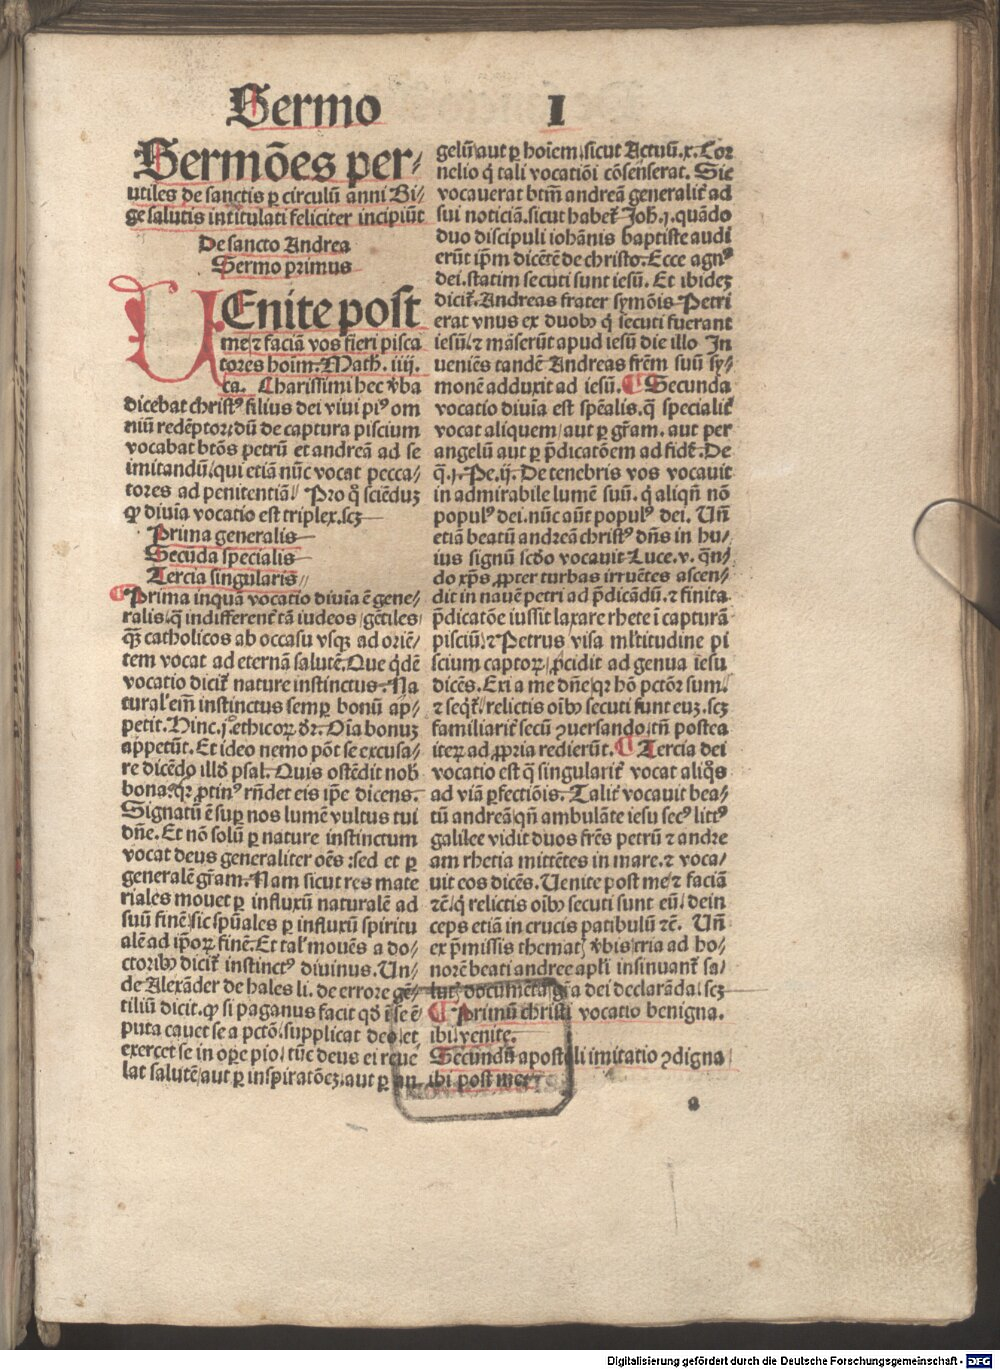 Sermo I
Sermões per⸗
utiles de sanctis ꝑ circulũ anni Bi⸗
ge salutis intitulati feliciter incipiũt
De sancto Andrea
Sermo primus
UEnite post
me ⁊ faciã vos fieri pisca
tores hoim. Math. iiij.
ca. Charissimi hec v̾ba
dicebat christꝰ filius dei vivi piꝰ om
niũ redẽptor, dũ de captura piscium
vocabat btõs petrũ et andreã ad se
imitandũ, qui etiã nũc vocat pecca⸗
tores ad penitentiã. Pro qͦ sciẽduz
ꝙ diuina vocatio est triplex. scz
Prima generalis
Secũda specialis
Tercia singularis
Prima inquã vocatio diuina ẽ gene⸗
ralis, q̃ indifferent̾ tã iudeos, gẽtiles
qz̃ catholicos ab occasu vsqz ad oriẽ⸗
tem vocat ad eternã salutẽ. Que qͥdẽ
vocatio dicit̾ nature instinctus. Na
tural' em̃ instinctus semꝑ bonũ ap⸗
petit. Hinc. j. ethicoꝝ d̾r. Oĩa bonuz
appetũt. Et ideo nemo põt se excusa⸗
re dicẽdo illd̾ psal. Quis ostẽdit nob̾
bona. qꝛ ꝓtinꝰ rñdet eis ip̃e dicens.
Signatũ ẽ suꝑ nos lumẽ vultus tui
dñe. Et nõ solũ ꝑ nature instinctum
vocat deus generaliter oẽs: sed et ꝑ
generalẽ gr̃am. Nam sicut res mate
riales mouet ꝑ influxũ naturalẽ ad
suũ finẽ, sic sp̃uales ꝑ influxũ spiritu
alẽ ad ip̃oꝝ finẽ. Et tal' mouẽs a do⸗
ctoribꝰ dicit̾ instinctꝰ diuinus. Un⸗
de Alexãder de hales li. de errore gẽ⸗
tiliũ dicit. ꝙ si paganus facit qd̾ ĩ se ẽ
puta cauet se a pctõ, supplicat deo, et
exercet se in oꝑe pio, tũc deus ei reue
lat salutẽ, aut ꝑ inspiratõez, aut ꝑ an
gelũ, aut ꝑ hoĩem, sicut Actuũ. x. Cor
nelio qͥ tali vocatiõi cõsenserat. Sic
vocauerat btm̃ andreã generalit̾ ad
sui noticiã. sicut habet̾ Joh̾. j. quãdo
duo discipuli iohãnis baptiste audi
erũt ip̃m dicẽtẽ de christo. Ecce agnꝰ
dei. statim secuti sunt iesũ. Et ibidez
dicit̾. Andreas frater symõis Petri
erat vnus ex duobꝰ qͥ secuti fuerant
iesũ, ⁊ mãserũt apud iesũ die illo. In
ueniẽs tandẽ Andreas frẽm suũ sy⸗
monẽ adduxit ad iesũ. ¶ Secunda
vocatio diuina est spẽalis. q̃ specialit̾
vocat aliquem, aut ꝑ gr̃am. aut per
angelũ aut ꝑ p̃dicatõem ad fidẽ. De
q̃. j. Pe. ij. De tenebris vos vocauit
in admirabile lumẽ suũ. qͥ aliqñ nõ
populꝰ dei. nũc aũt populꝰ dei. Uñ
etiã beatũ andreã christꝰ dñs in hu⸗
ius signũ scd̾o vocauit Luce. v. qñ⸗
do xp̃s ꝓpter turbas irruẽtes ascen⸗
dit in nauẽ petri ad p̃dicãdũ. ⁊ finita
p̃dicatõe iussit laxare rhete i capturã
pisciũ. ⁊ Petrus visa ml̾titudine pi
scium captoꝝ, ꝓcidit ad genua iesu
dicẽs. Exi a me dñe, qꝛ hõ pctõr sum.
⁊ seqͥt̾. relictis oĩbꝰ secuti sunt euz. scz
familiarit̾ secũ ꝯuersando, tñ postea
iteꝝ ad ꝓpria redierũt. ¶ Tercia dei
vocatio est q̃ singularit̾ vocat aliqͦs
ad viã ꝑfectiõis. Talit̾ vocauit bea⸗
tũ andreã, qñ ambulãte iesu secꝰ littꝰ
galilee vidit duos fr̃es petrũ ⁊ andre
am rhetia mittẽtes in mare. ⁊ voca⸗
uit eos dicẽs. Uenite post me, ⁊ faciã
⁊c̃. qͥ relictis oĩbꝰ secuti sunt eũ, dein
ceps etiã in crucis patibulũ ⁊c̃. Uñ
ex p̃missis thematꝭ v̾bis, tria ad ho⸗
norẽ beati andree apl̾i insinuant̾ sa⸗
lutꝭ documẽta, gr̃a dei declarãda. scz
¶ Primũ christi vocatio benigna.
ibi, venite.
Secundũ apostoli imitatio ꝯdigna
ibi post me
a
Digitalisierung gefördert durch die Deutsche Forschungsgemeinschaft - DFG